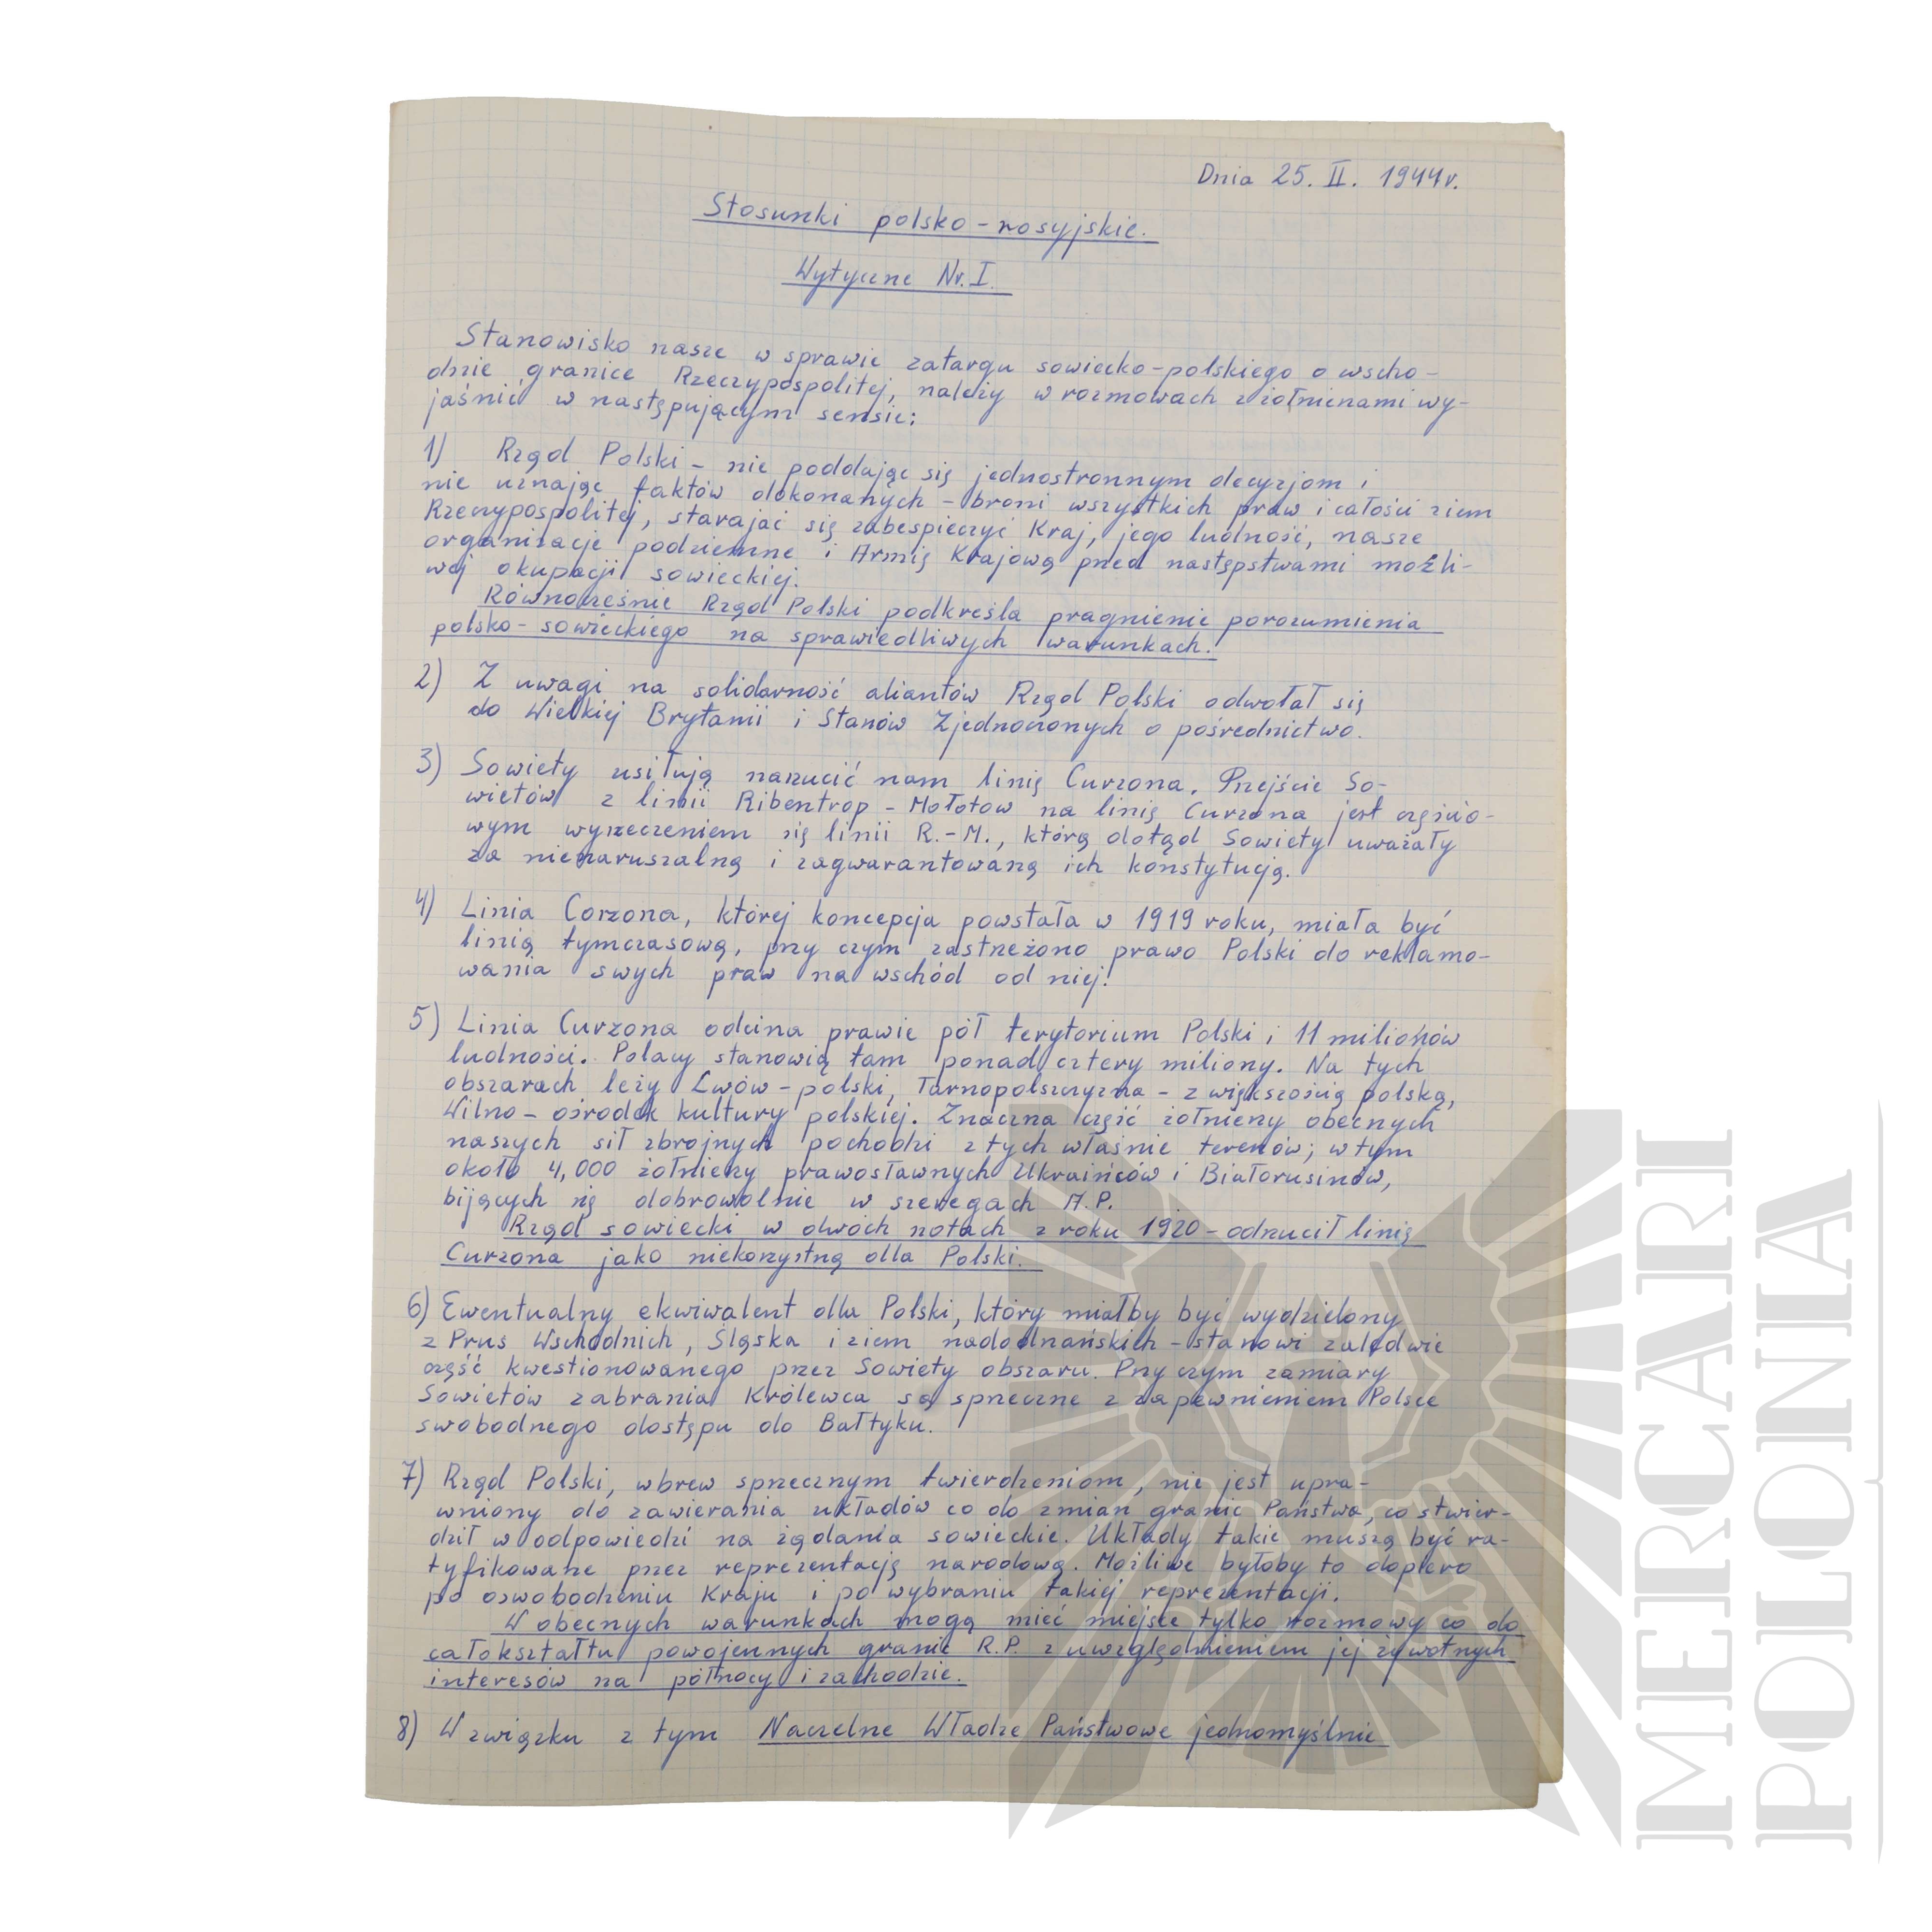 Dnia 25. II. 1944r.
Stosunki polsko-rosyjskie.
Wytyczne Nr. I.
Stanowisko nasze w sprawie zatargu sowiecko-polskiego o wscho-
dnie granice Rzeczypospolitej, należy w rozmowach z żołnierzami wy-
jaśnić w następującym sensie:
1) Rząd Polski - nie poddając się jednostronnym decyzjom i
nie uznając faktów dokonanych - broni wszystkich praw i całości ziem
Rzeczypospolitej, starając się zabespieczyć Kraj, jego ludność, nasze
organizacje podziemne i Armię Krajową przed następstwami możli-
wej okupacji sowieckiej.
Równocześnie Rząd Polski podkreśla pragnienie porozumienia
polsko-sowieckiego na sprawiedliwych warunkach.
2) Z uwagi na solidarność aliantów Rząd Polski odwołał się
do Wielkiej Brytanii i Stanów Zjednoczonych o pośrednictwo.
3) Sowiety usiłują narzucić nam linię Curzona. Przejście So-
wietów z linii Ribentrop - Mołotow na linię Curzona jest częścio-
wym wyrzeczeniem się linii R.-M., którą dotąd Sowiety uważały
za nienaruszalną i zagwarantowaną ich konstytucją.
4) Linia Corzona, której koncepcja powstała w 1919 roku, miała być
linią tymczasową, przy czym zastrzeżono prawo Polski do reklamo-
wania swych praw na wschód od niej.
5) Linia Curzona odcina prawie pół terytorium Polski i 11 milionów
ludności. Polacy stanowią tam ponad cztery miliony. Na tych
obszarach leży Lwów - polski, Tarnopolszczyzna - z większością polską,
Wilno - ośrodek kultury polskiej. Znaczna część żołnierzy obecnych
naszych sił zbrojnych pochodzi z tych właśnie terenów; w tym
około 4,000 żołnierzy prawosławnych Ukraińców i Białorusinów,
bijących się dobrowolnie w szeregach A.P.
Rząd sowiecki w dwóch notach z roku 1920 - odrzucił linię
Curzona jako niekorzystną dla Polski.
6) Ewentualny ekwiwalent dla Polski, który miałby być wydzielony
z Prus Wschodnich, Śląska i ziem nadodrzańskich - stanowi zaledwie
część kwestionowanego przez Sowiety obszaru. Przy czym zamiary
Sowietów zabrania Królewca są sprzeczne z zapewnieniem Polsce
swobodnego dostępu do Bałtyku.
7) Rząd Polski, wbrew sprzecznym twierdzeniom, nie jest upra-
wniony do zawierania układów co do zmian granic Państwa, co stwier-
dził w odpowiedzi na żądania sowieckie. Układy takie muszą być ra-
tyfikowane przez reprezentację narodową. Możliwe byłoby to dopiero
po oswobodzeniu Kraju i po wybraniu takiej reprezentacji.
W obecnych warunkach mogą mieć miejsce tylko rozmowy co do
całokształtu powojennych granic R.P. z uwzględnieniem jej żywotnych
interesów na północy i zachodzie.
8) W związku z tym Naczelne Władze Państwowe jednomyślnie
MERCARI
POLONIA